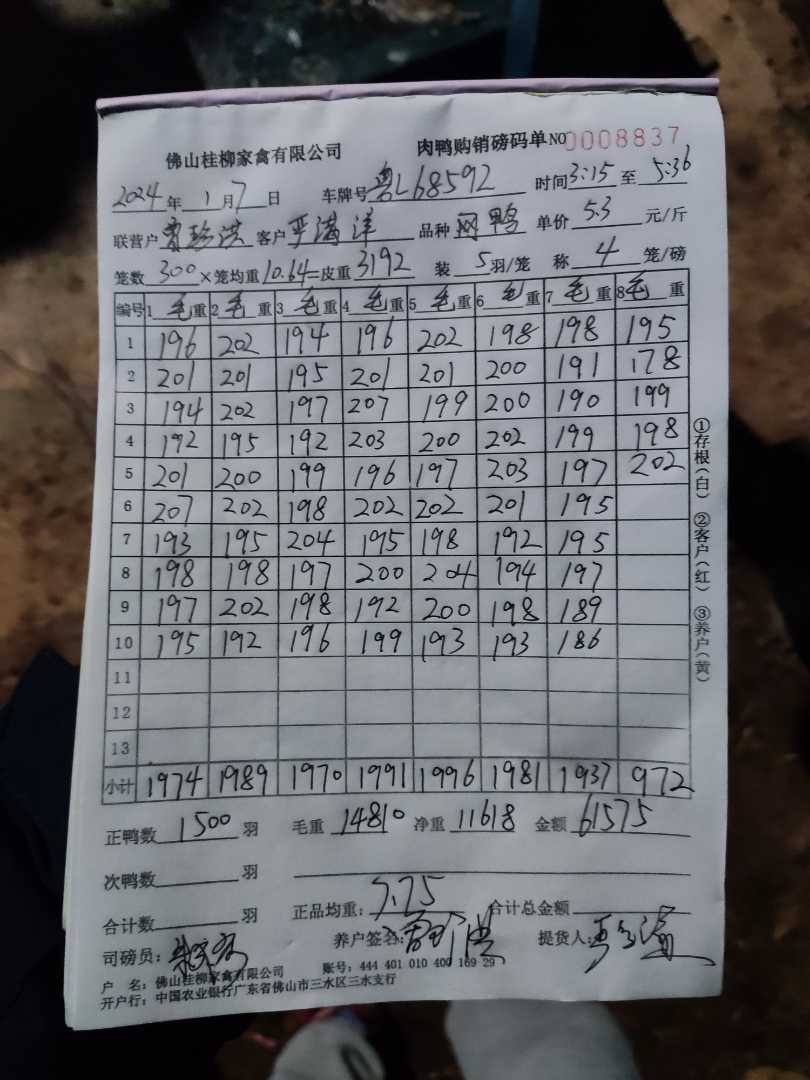 佛山桂柳家禽有限公司 肉鸭购销磅码单 NO 0008837
2024年1月7日 车牌号粤L68592 时间3:15至5:36
联营户 曹珍洪 客户 严满洋 品种 网鸭 单价5.3元/斤
笼数300×笼均重10.64=皮重3192 装5羽/笼 称4笼/磅
编号 1毛重 2毛重 3毛重 4毛重 5毛重 6毛重 7毛重 8毛重
1 196 202 194 196 202 198 198 195
2 201 201 195 201 201 200 191 178
3 194 202 197 207 199 200 190 199
4 192 195 192 203 200 202 199 198
5 201 200 199 196 197 203 197 202
6 207 202 198 202 202 201 195
7 193 195 204 195 198 192 195
8 198 198 197 200 204 194 197
9 197 202 198 192 200 198 189
10 195 192 196 199 193 193 186
11
12
13
小计 1974 1989 1970 1991 1996 1981 1937 972
正鸭数1500羽 毛重14810 净重11618 金额61575
次鸭数 羽
合计数 羽 正品均重:7.75 合计总金额
司磅员: 养户签名: 提货人:
户 名:佛山桂柳家禽有限公司 账号:444 401 010 400 169 29
开户行:中国农业银行广东省佛山市三水区三水支行
①存根(白) ②客户(红) ③养户(黄)